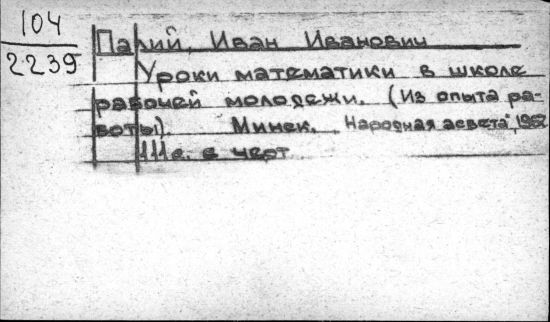 104
2239
Палий, Иван Иванович
Уроки математики в школе
рабочей молодежи. (Из опыта ра-
боты). Минск. "Народная асвета", 1962
111 с. с черт